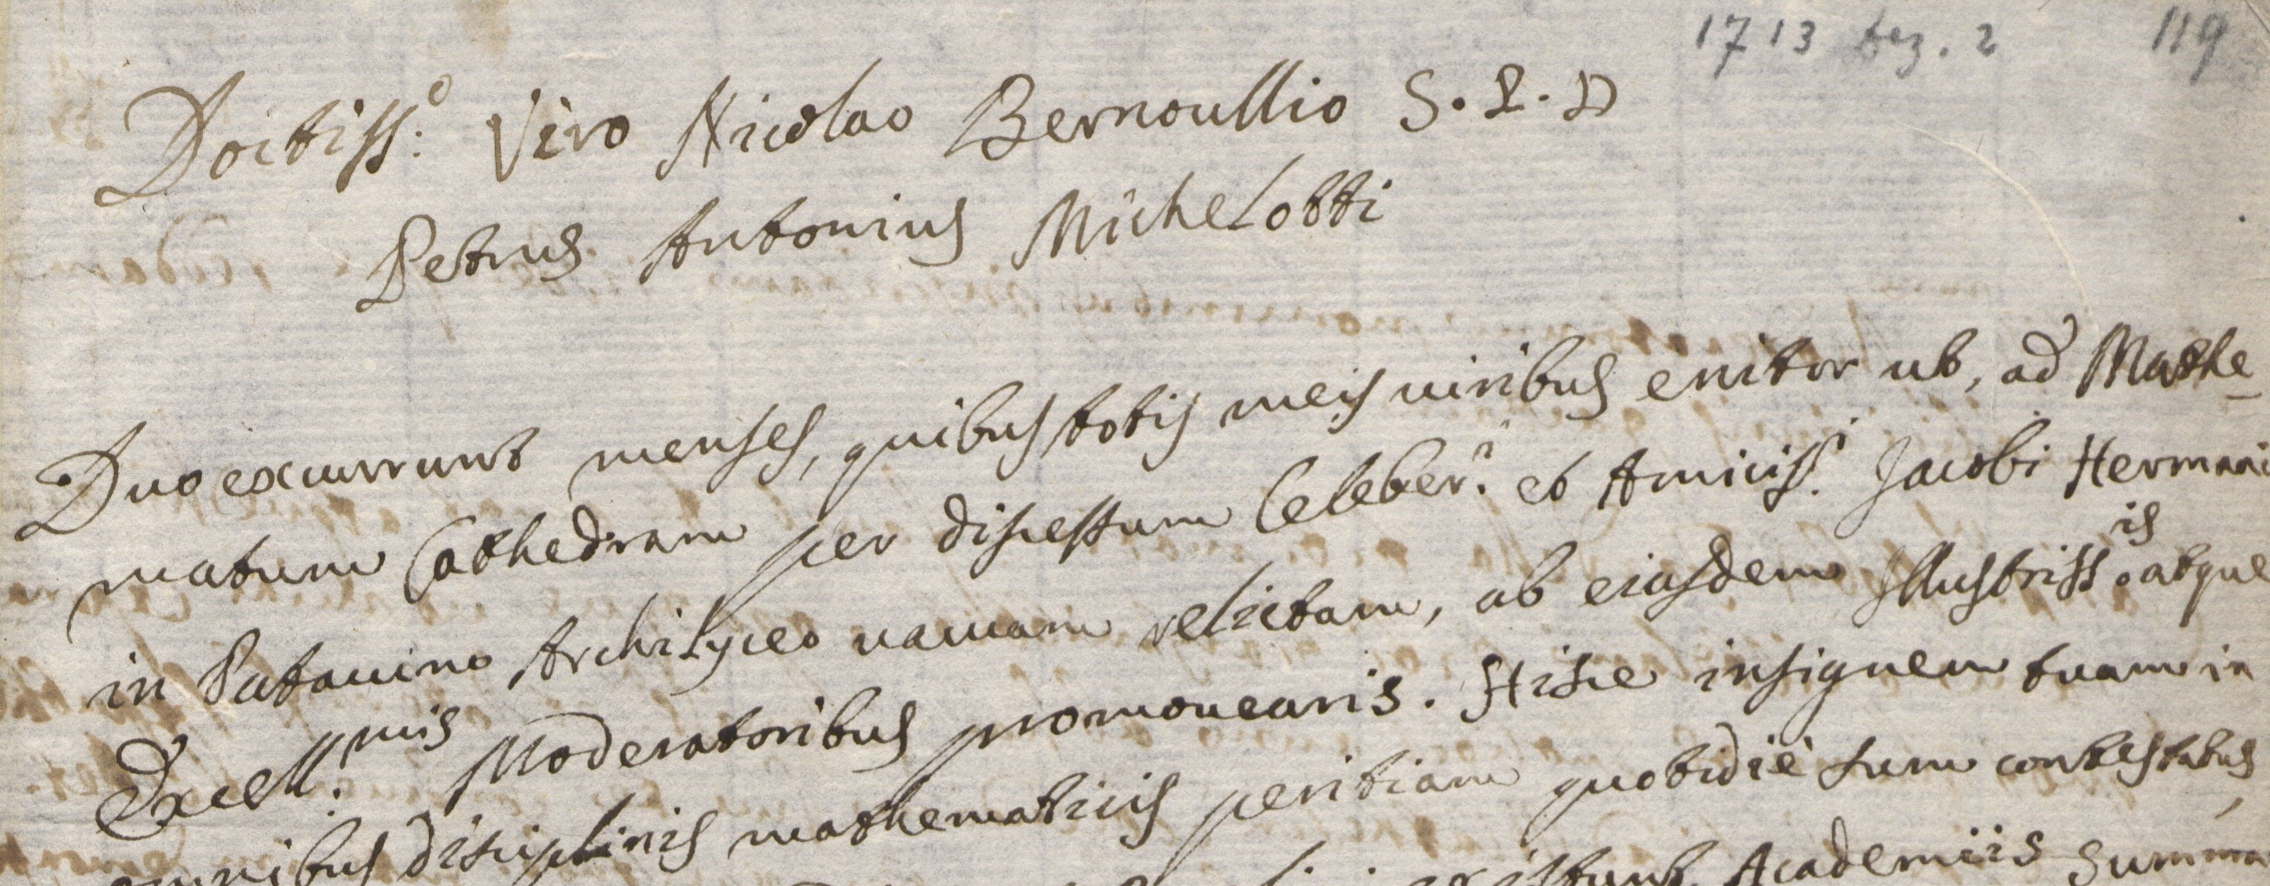 1713 dez. 2 119
Doctiss:o Viro Nicolao Bernoullio S. P. D
Petrus Antonius Michelotti
Duo excurrunt menses, quibus totis meis viribus enitor ut, ad Mathe-
matum Cathedram per discessum Celeber.i et Amiciss.i Jacobi Hermani
in Patavino Archilyceo vacuam relictam, ab eiusdem Illustriss.is atque
Excell.mis Moderatoribus promovearis. Hisce insignem tuam in
omnibus disciplinis mathematicis peritiam quotidiè sum contestatus,
Academiis summa